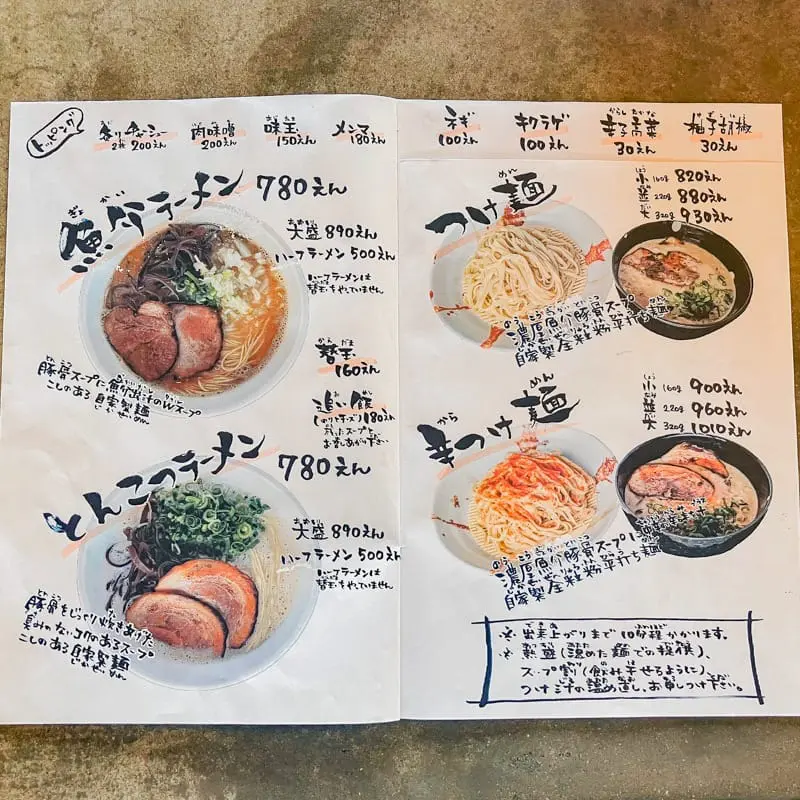 トッピング
炙りチャーシュー
2枚 200えん
肉味噌
200えん
味玉
150えん
メンマ
180えん
魚介ラーメン 780えん
大盛 890えん
ハーフラーメン 500えん
ハーフラーメンは
替玉をやっていません
豚骨スープに魚介出汁のWスープ
こしのある自家製麺
替玉
160えん
追い飯
(のりとチーズ) 180えん
残ったスープと
お召しあがり下さい
とんこつラーメン 780えん
大盛 890えん
ハーフラーメン 500えん
ハーフラーメンは
替玉をやっていません
豚骨をじっくり炊きあげた
臭みのないコクのあるスープ
こしのある自家製麺
ネギ
100えん
キクラゲ
100えん
辛子高菜
30えん
柚子胡椒
30えん
つけ麺
小 160g 820えん
並 220g 880えん
大 320g 930えん
濃厚魚介豚骨スープ
自家製全粒粉平打ち麺
辛つけ麺
小 160g 900えん
並 220g 960えん
大 320g 1010えん
濃厚魚介豚骨スープ
自家製全粒粉平打ち麺
※出来上がりまで10分程かかります。
※熱盛(温めた麺での提供)、
スープ割(飲み干せるように)、
つけ汁の温め直し、お申しつけ下さい。